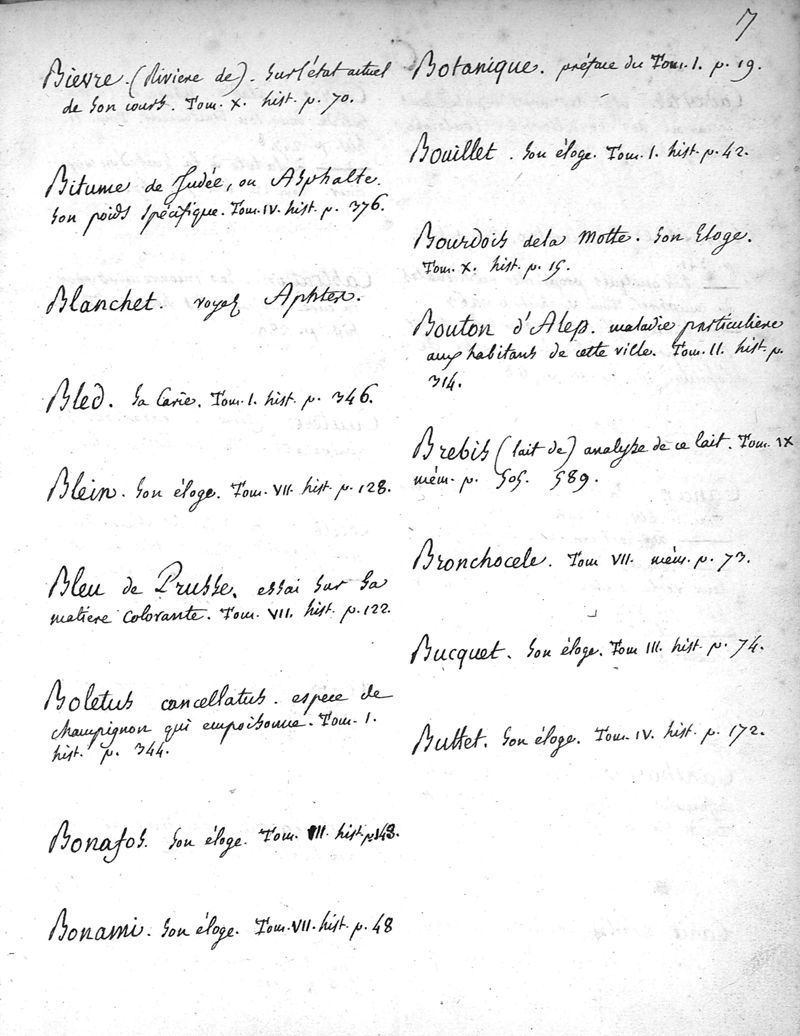 7
Bievre. (Riviere de). Sur l'état actuel
de son cours. Tom. X. hist. p. 70.
Bitume de Judée, ou Asphalte.
Son poids spécifique. Tom. IV. hist. p. 376.
Blanchet. voyez Aphtes.
Bled. Sa Carie. Tom. I. hist. p. 346.
Blein. Son éloge. Tom. VII. hist. p. 128.
Bleu de Prusse. essai sur sa
matiere colorante. Tom. VII. hist. p. 122.
Boletus cancellatus. espece de
champignon qui empoisonne. Tom. I.
hist. p. 344.
Bonafos. Son éloge. Tom. III. hist. p. 143.
Bonami. Son éloge. Tom. VII. hist. p. 48
Botanique. préface du Tom. I. p. 19.
Bouillet. Son éloge. Tom. I. hist. p. 42.
Bourdois de la Motte. Son Eloge.
Tom. X. hist. p. 15.
Bouton d'Alep. maladie particuliere
aux habitans de cette ville. Tom. II. hist. p.
314.
Brebis (lait de) analyse de ce lait. Tom. IX
mém. p. 505. 589.
Bronchocele. Tom VII. mém. p. 73.
Bucquet. Son éloge. Tom III. hist. p. 74.
Buttet. Son éloge. Tom. IV. hist. p. 172.